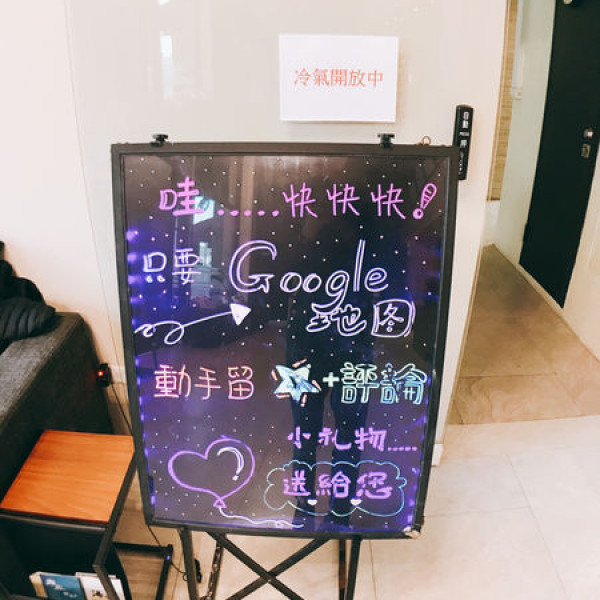 冷氣開放中
自動
哇.....快快快!
只要Google
地图
動手留+評論
小礼物.....
送給您